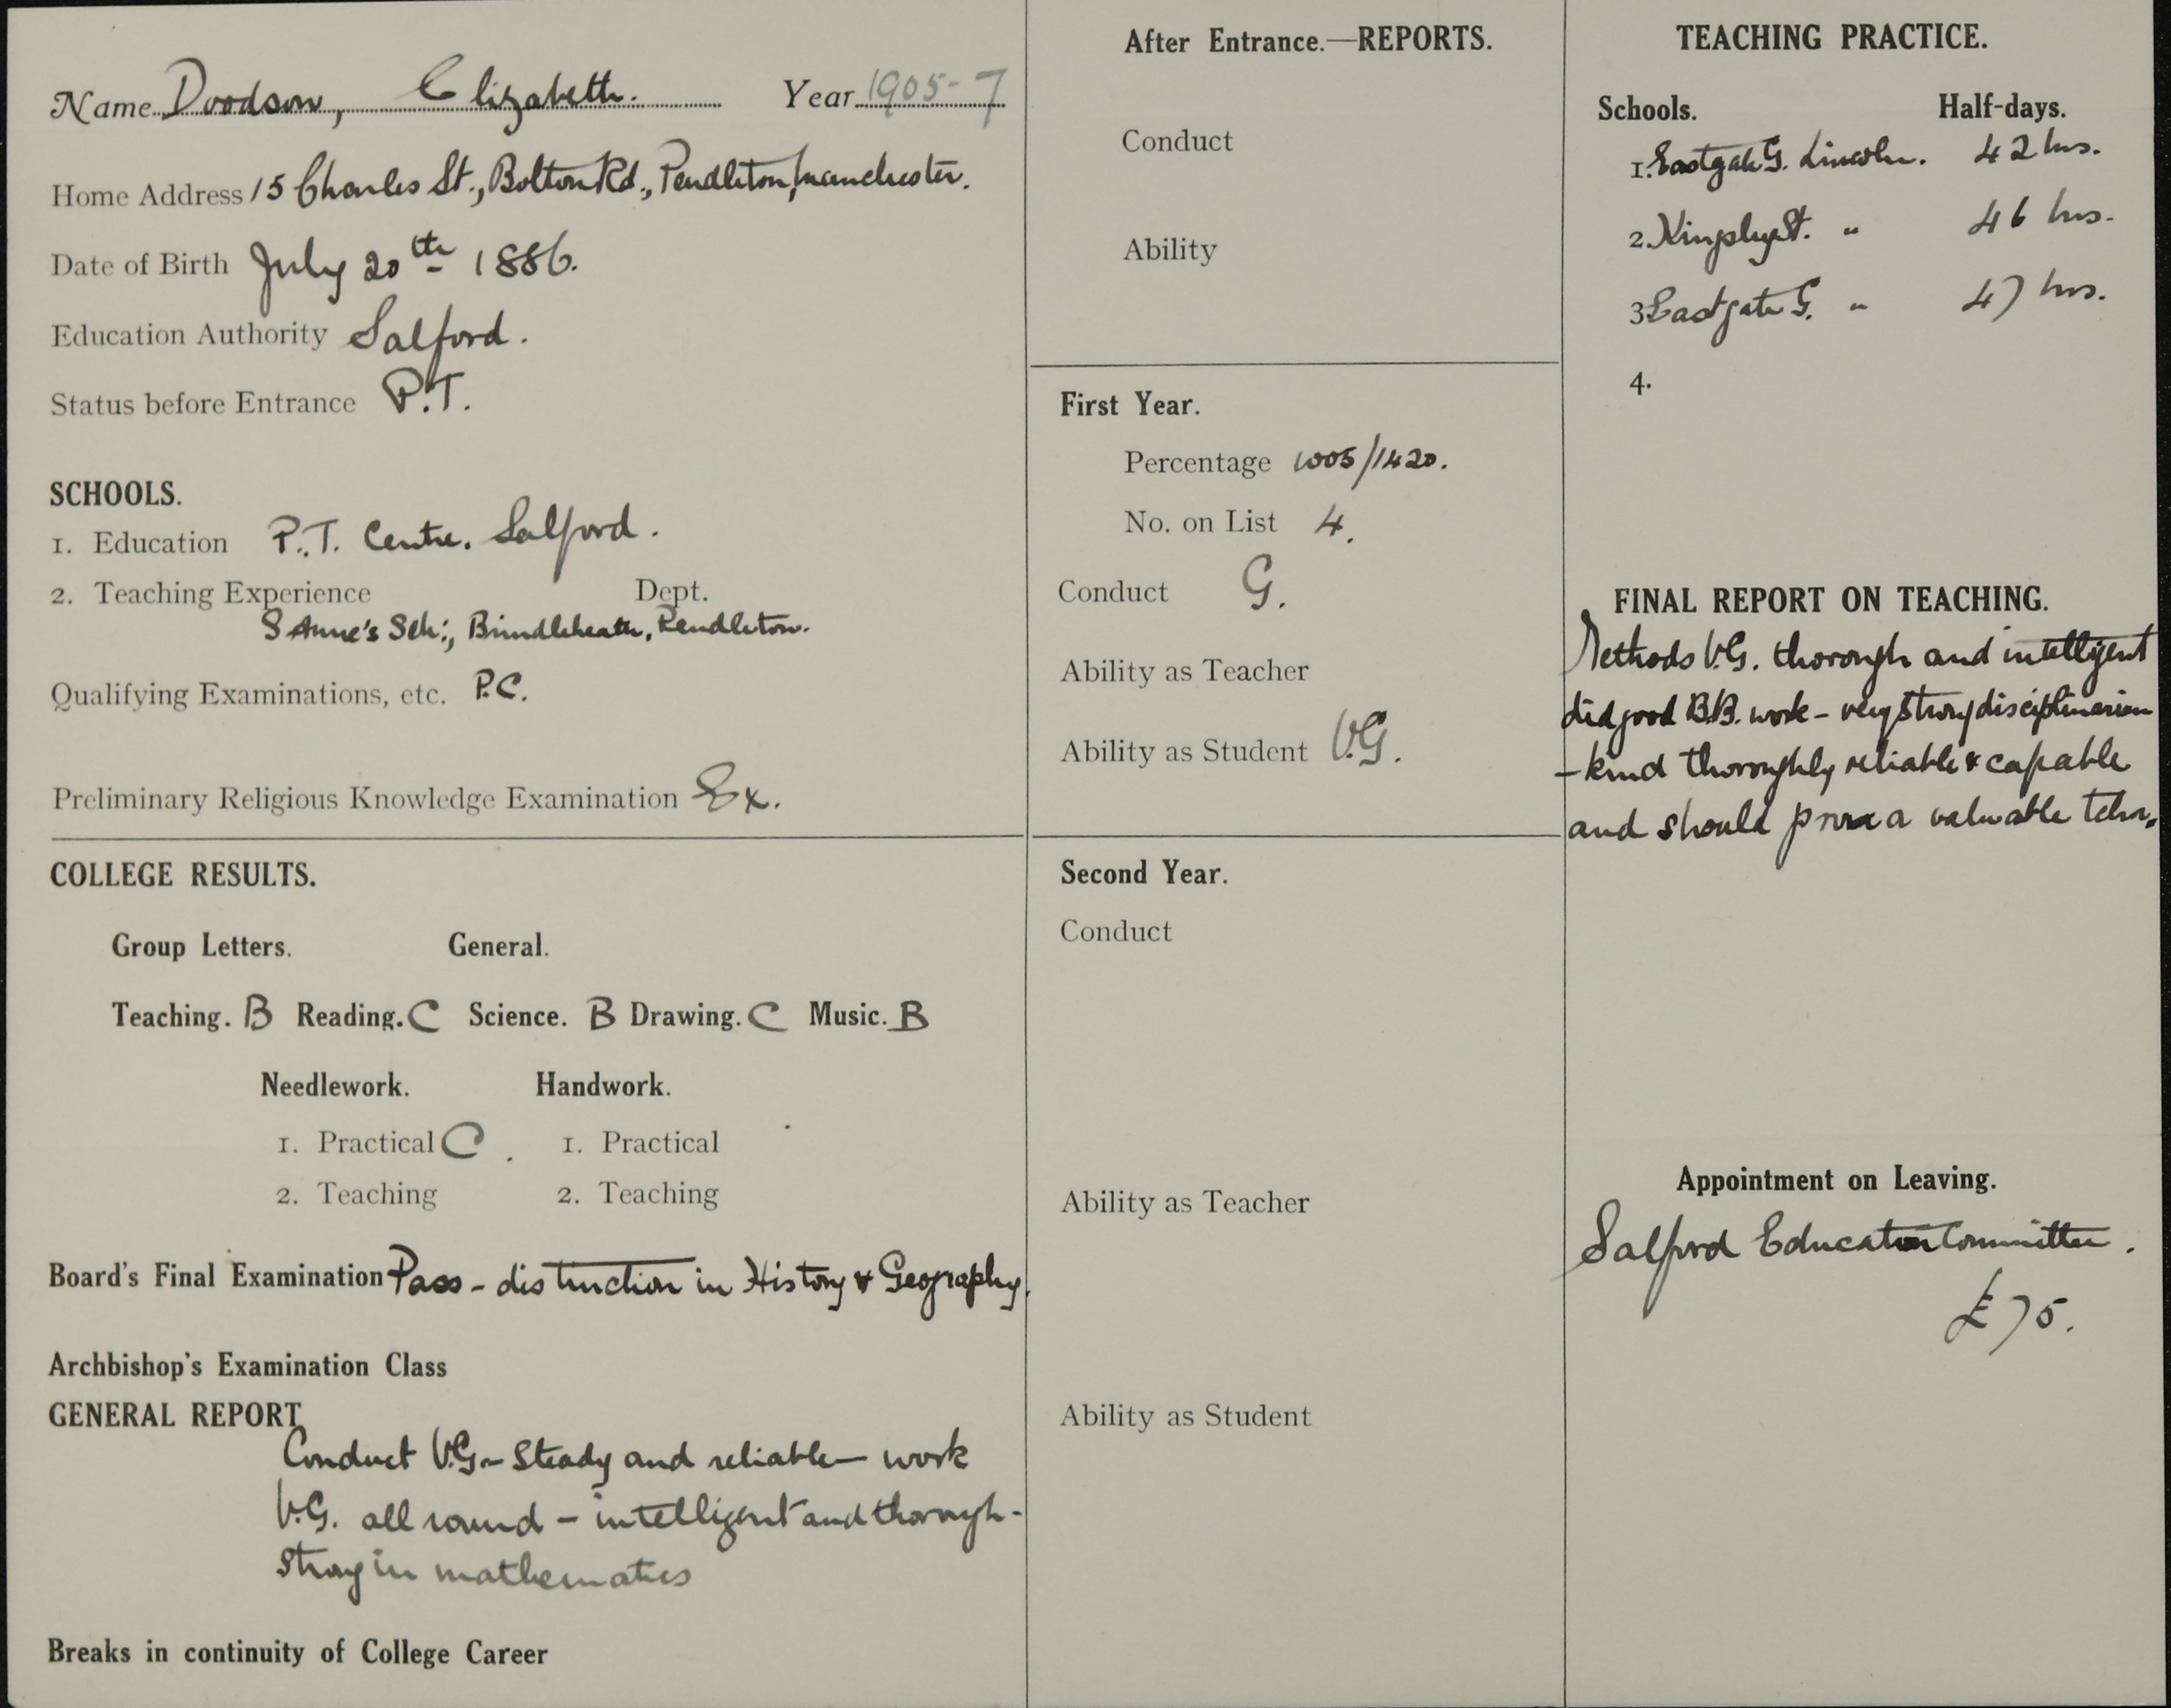 Name Doodson, Elizabeth. Year 1905-7
Home Address 15 Charles St., Bolton Rd., Pendleton, Manchester.
Date of Birth July 20th 1886.
Education Authority Salford.
Status before Entrance P.T.
SCHOOLS.
1. Education P.T. Centre. Salford.
2. Teaching Experience Dept.
S Anne's Sch:, Brindleheath, Pendleton.
Qualifying Examinations, etc. P.C.
Preliminary Religious Knowledge Examination Ex.
COLLEGE RESULTS.
Group Letters. General.
Teaching. B Reading. C Science. B Drawing. C Music. B
Needlework. Handwork.
1. Practical C. 1. Practical
2. Teaching 2. Teaching
Board's Final Examination Pass - distinction in History & Geography.
Archbishop's Examination Class
GENERAL REPORT
Conduct V.G - Steady and reliable - work
V.G. all round - intelligent and thorough -
strong in mathematics
Breaks in continuity of College Career
After Entrance.—REPORTS.
Conduct
Ability
First Year.
Percentage 1005/1420.
No. on List 4.
Conduct G.
Ability as Teacher
Ability as Student V.G.
Second Year.
Conduct
Ability as Teacher
Ability as Student
TEACHING PRACTICE.
Schools. Half-days.
1. Eastgate G. Lincoln. 42 hrs.
2. St. " 46 hrs.
3 Eastgate G. " 47 hrs.
4.
FINAL REPORT ON TEACHING.
Methods V.G. thorough and intelligent
did good B.B. work - very strong disciplinarian
- kind thoroughly reliable & capable
and should prove a valuable tchr.
Appointment on Leaving.
Salford Education Committee.
£75.